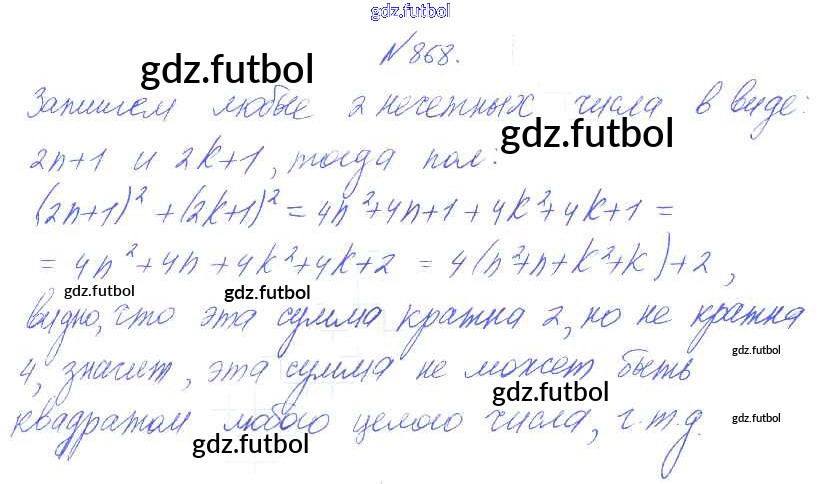 gdz.futbol
№868.
gdz.futbol
Запишем любые 2 нечетных числа в виде:
gdz.futbol
2n+1 и 2k+1, тогда пол:
(2n+1)² + (2k+1)² = 4n²+4n+1+4k²+4k+1 =
= 4n²+4n+4k²+4k+2 = 4(n²+n+k²+k)+2,
gdz.futbol gdz.futbol
видно, что эта сумма кратна 2, но не кратна
gdz.futbol
4, значит, эта сумма не может быть
gdz.futbol
квадратом любого целого числа, ч.т.д.
gdz.futbol
gdz.futbol